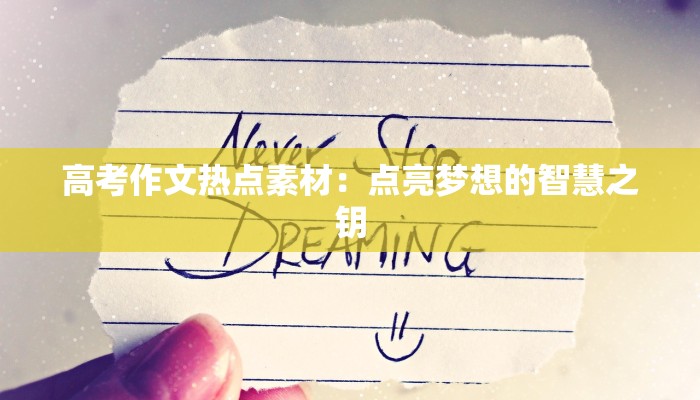 Never Stop
高考作文热点素材：点亮梦想的智慧之
钥
DREAMING